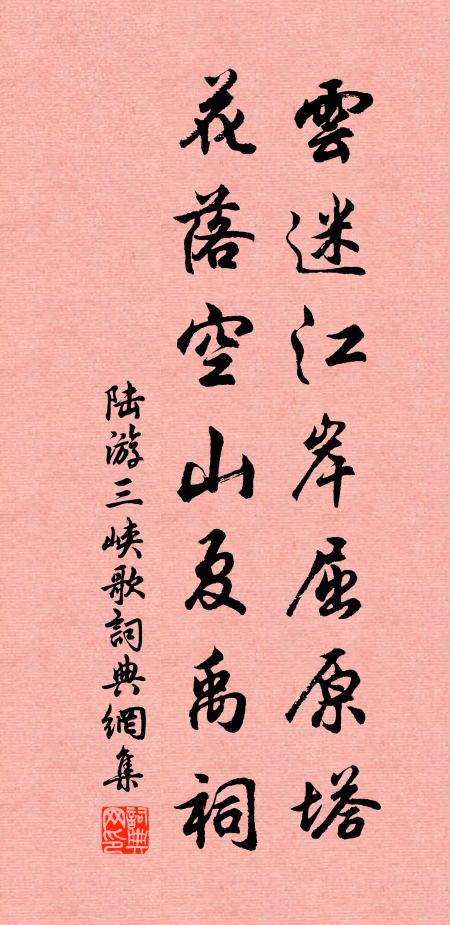 雲迷江岸屈原塔
花落空山夏禹祠
陆游三峡歌詞典網集
詞典网印